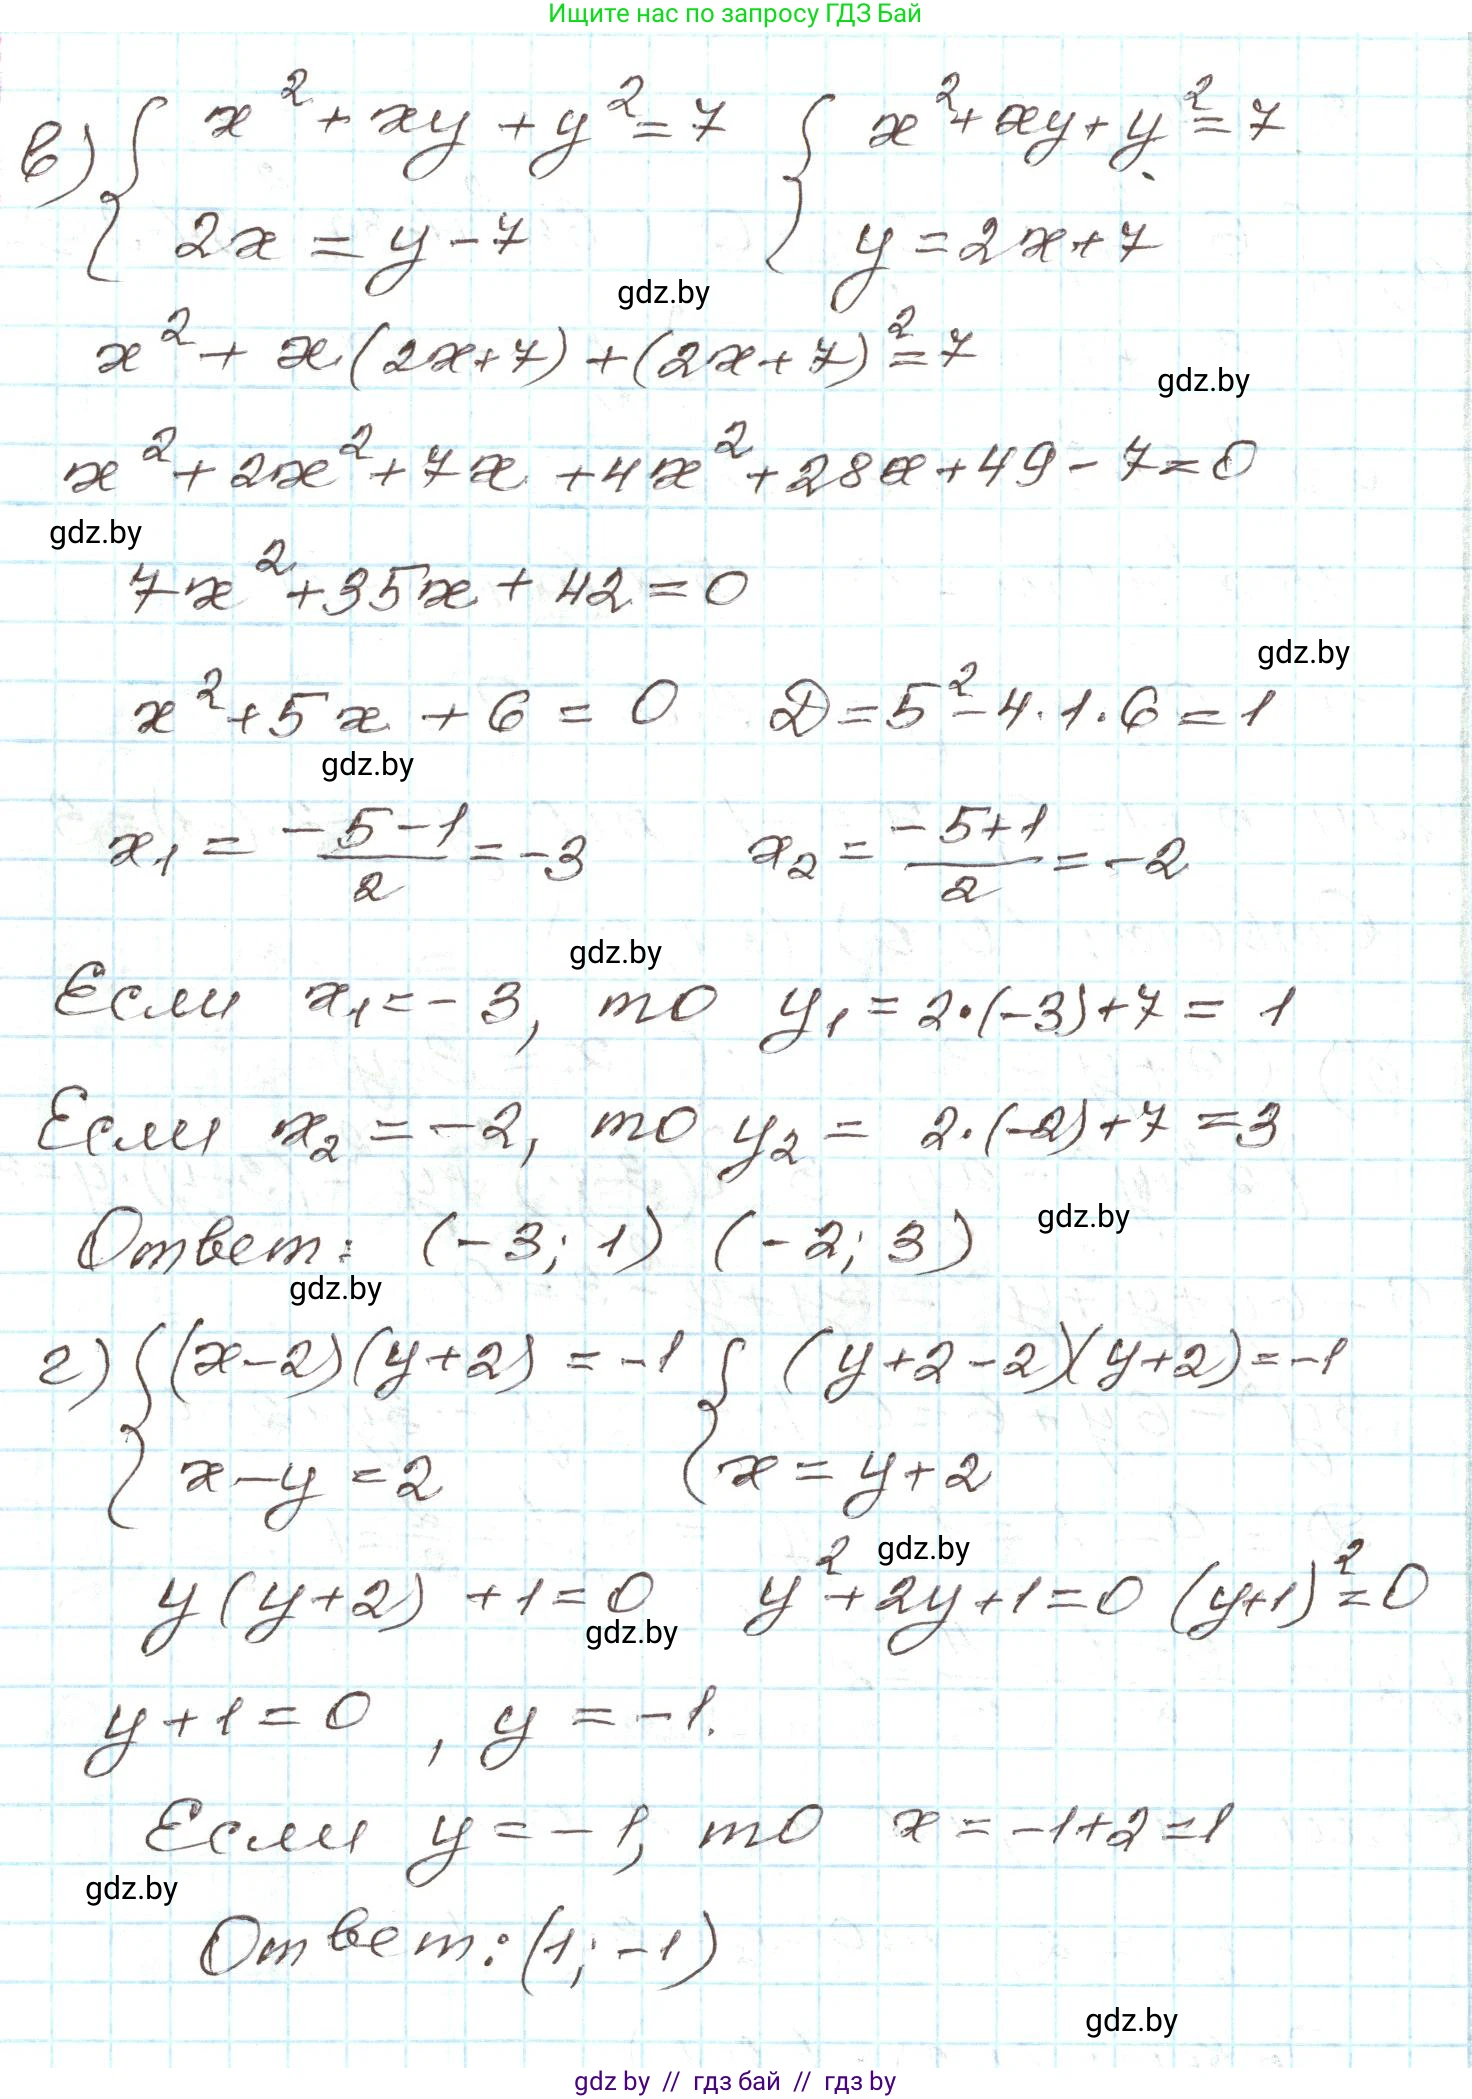 Ищите нас по запросу ГДЗ Бай
в) { x² + xy + y² = 7 { x² + xy + y² = 7
2x = y - 7 y = 2x + 7
gdz.by
x² + x(2x+7) + (2x+7)² = 7
gdz.by
x² + 2x² + 7x + 4x² + 28x + 49 - 7 = 0
gdz.by
7x² + 35x + 42 = 0
gdz.by
x² + 5x + 6 = 0 D = 5² - 4·1·6 = 1
gdz.by
x₁ = (-5-1)/2 = -3 x₂ = (-5+1)/2 = -2
gdz.by
Если x₁ = -3, то y₁ = 2·(-3)+7 = 1
Если x₂ = -2, то y₂ = 2·(-2)+7 = 3
gdz.by
Ответ: (-3; 1) (-2; 3)
gdz.by
г) { (x-2)(y+2) = -1 { (y+2-2)(y+2) = -1
x - y = 2 x = y + 2
gdz.by
y(y+2) + 1 = 0 y² + 2y + 1 = 0 (y+1)² = 0
gdz.by
y + 1 = 0 , y = -1.
Если y = -1, то x = -1+2 = 1
gdz.by
Ответ: (1; -1)
gdz.by
gdz by // гдз бай // гдз by